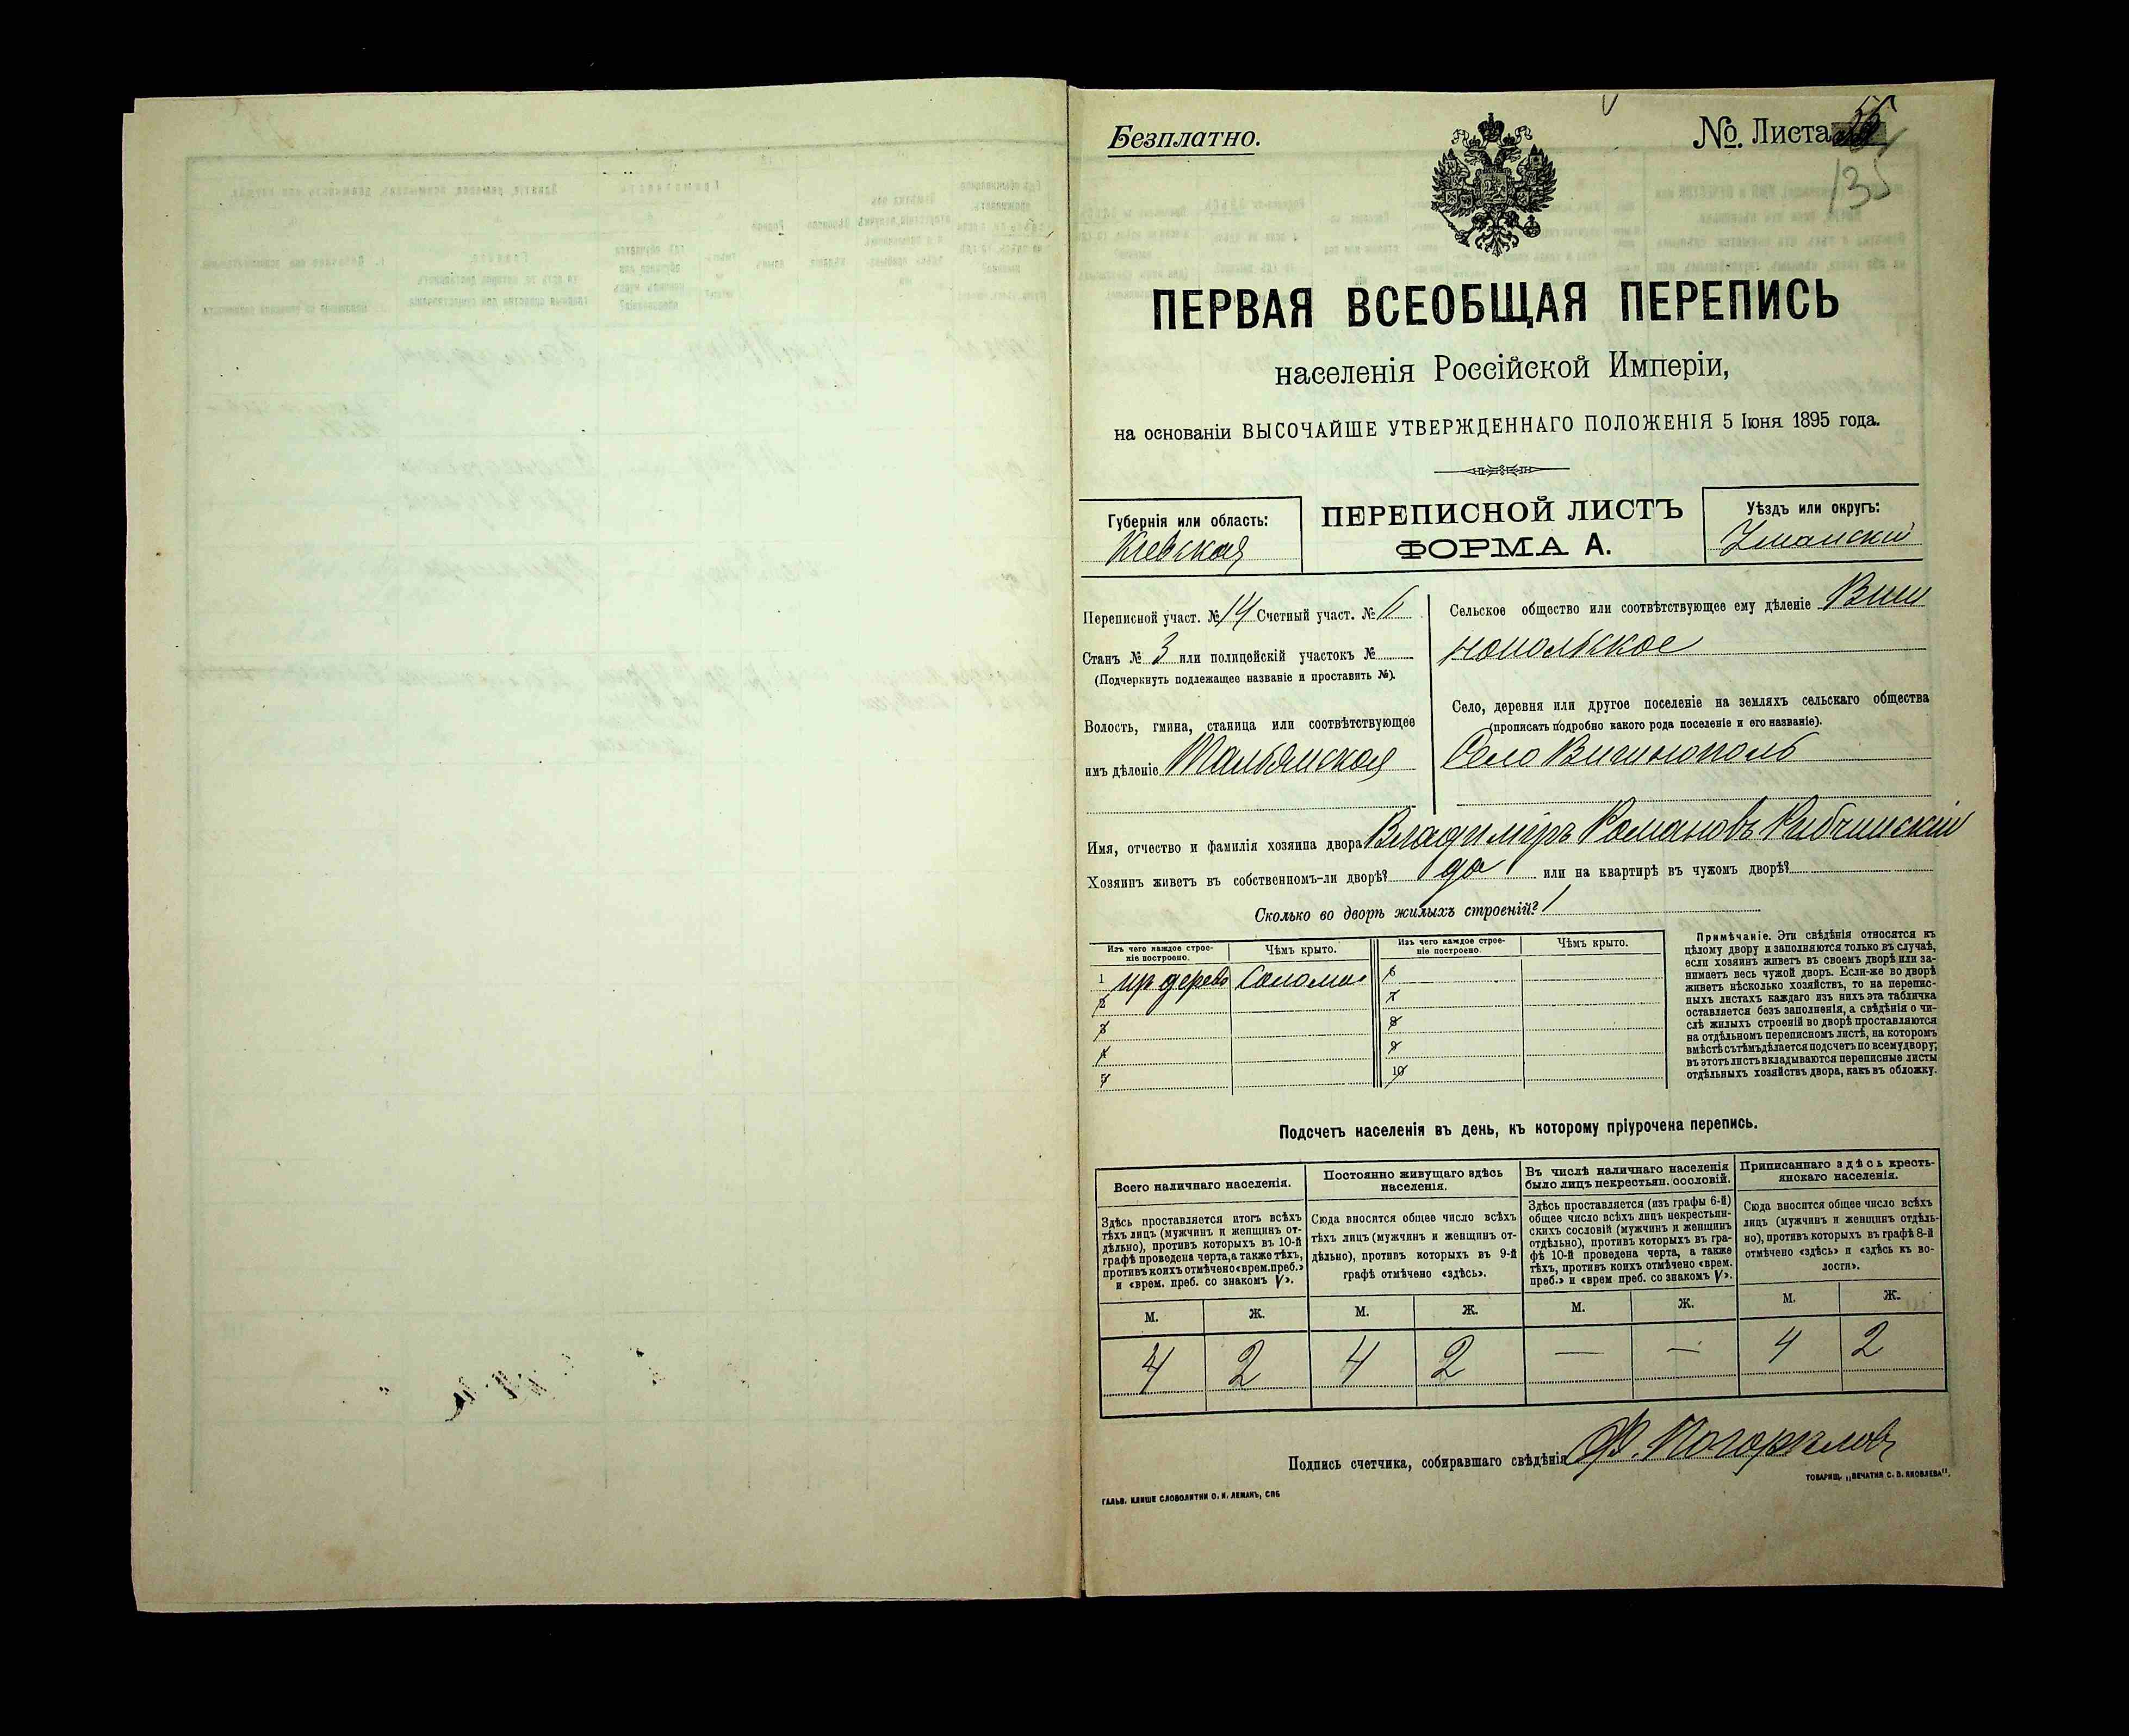 Безплатно.
№. Листа 55
135
ПЕРВАЯ ВСЕОБЩАЯ ПЕРЕПИСЬ
населенія Россійской Имперіи,
на основаніи ВЫСОЧАЙШЕ УТВЕРЖДЕННАГО ПОЛОЖЕНІЯ 5 Іюня 1895 года.
Губернія или область:
Кіевская
ПЕРЕПИСНОЙ ЛИСТЪ
ФОРМА А.
Уѣздъ или округъ:
Уманскій
Переписной участ. № 14 Счетный участ. №
Станъ № 3 или полицейскій участокъ №
(Подчеркнуть подлежащее названіе и проставить №).
Волость, гмина, станица или соотвѣтствующее
имъ дѣленіе Тальянская
Сельское общество или соотвѣтствующее ему дѣленіе Виш
нопольское
Село, деревня или другое поселеніе на земляхъ сельскаго общества
(прописать подробно какого рода поселеніе и его названіе).
Село Вишнополь
Имя, отчество и фамилія хозяина двора Владиміръ Романовъ Рибчинскій
Хозяинъ живетъ въ собственномъ-ли дворѣ? да или на квартирѣ въ чужомъ дворѣ?
Сколько во дворѣ жилыхъ строеній? 1
Изъ чего каждое строе-
ніе построено.
Чѣмъ крыто.
Изъ чего каждое строе-
ніе построено.
Чѣмъ крыто.
1 дерево Солома 6
2 7
3 8
4 9
5 10
Примѣчаніе. Эти свѣдѣнія относятся къ
цѣлому двору и заполняются только въ случаѣ,
если хозяинъ живетъ въ своемъ дворѣ или за-
нимаетъ весь чужой дворъ. Если-же во дворѣ
живетъ нѣсколько хозяйствъ, то на перепис-
ныхъ листахъ каждаго изъ нихъ эта табличка
оставляется безъ заполненія, а свѣдѣнія о чи-
слѣ жилыхъ строеній во дворѣ проставляются
на отдѣльномъ переписномъ листѣ, на которомъ
вмѣстѣ съ тѣмъ дѣлается подсчетъ по всему двору;
въ этотъ листъ вкладываются переписные листы
отдѣльныхъ хозяйствъ двора, какъ въ обложку.
Подсчетъ населенія въ день, къ которому пріурочена перепись.
Всего наличнаго населенія.
Здѣсь проставляется итогъ всѣхъ
тѣхъ лицъ (мужчинъ и женщинъ от-
дѣльно), противъ которыхъ въ 10-й
графѣ проведена черта, а также тѣхъ,
противъ коихъ отмѣчено «врем. преб.»
и «врем. преб. со знакомъ V».
Постоянно живущаго здѣсь
населенія.
Сюда вносится общее число всѣхъ
тѣхъ лицъ (мужчинъ и женщинъ от-
дѣльно), противъ которыхъ въ 9-й
графѣ отмѣчено «здѣсь».
Въ числѣ наличнаго населенія
было лицъ некрестьян. сословій.
Здѣсь проставляется (изъ графы 6-й)
общее число всѣхъ лицъ некрестьян-
скихъ сословій (мужчинъ и женщинъ
отдѣльно), противъ которыхъ въ гра-
фѣ 10-й проведена черта, а также
тѣхъ, противъ коихъ отмѣчено «врем.
преб.» и «врем преб. со знакомъ V».
Приписаннаго здѣсь кресть-
янскаго населенія.
Сюда вносится общее число всѣхъ
лицъ (мужчинъ и женщинъ отдѣль-
но), противъ которыхъ въ графѣ 8-й
отмѣчено «здѣсь» и «здѣсь къ во-
лости».
М. Ж. М. Ж. М. Ж. М. Ж.
4 2 4 2 — — 4 2
Подпись счетчика, собиравшаго свѣдѣнія Ф. Погорѣловъ
ГАЛЬВ. КЛИШЕ СЛОВОЛИТНИ О. И. ЛЕМАНЪ, СПБ
ТОВАРИЩ. „ПЕЧАТНЯ С. П. ЯКОВЛЕВА".